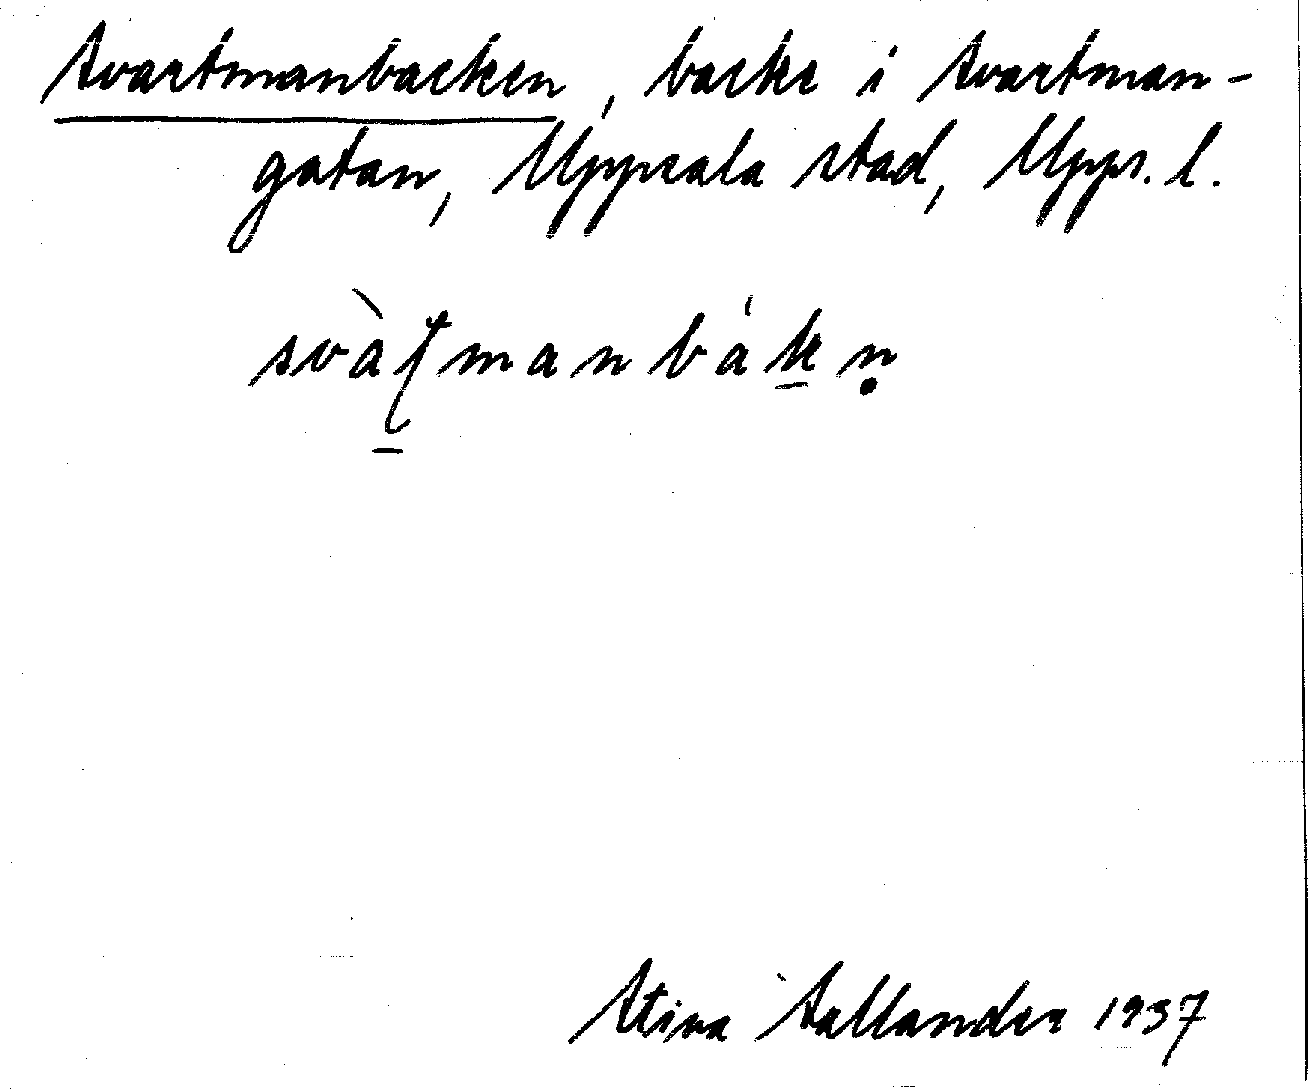 Svartmanbacken, backe i Svartman-
gatan, Uppsala stad, Upps. l.
svàʈmanbákṇ
Stina Sallander 1937